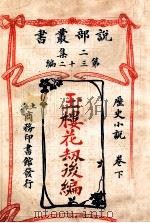 說部叢書
二集
第三十二編
歷史小說　卷下
玉樓花刼後編
上海商務印書館發行